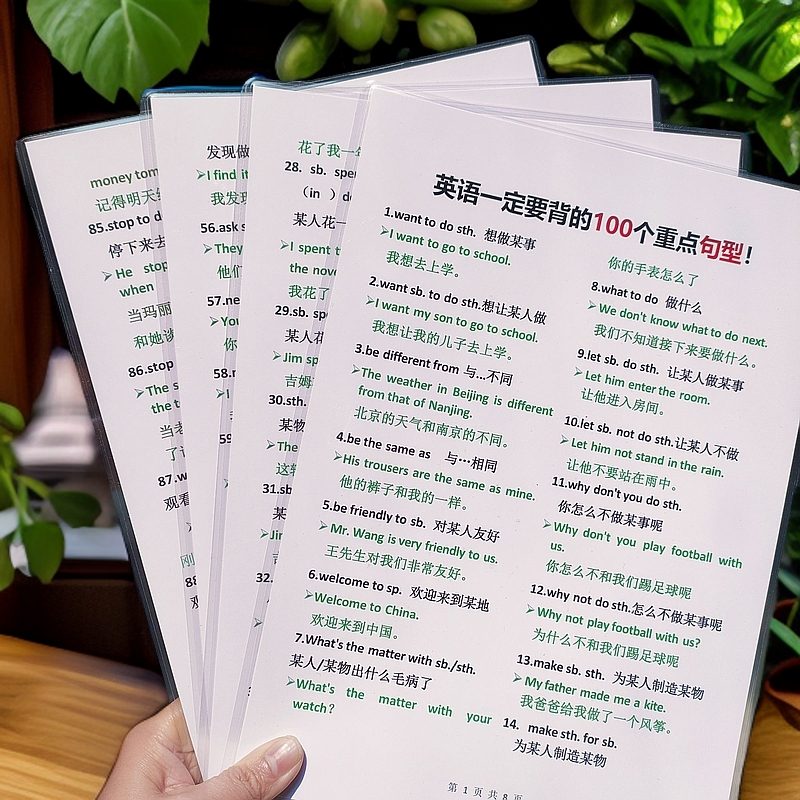 money tom
记得明天给
85.stop to d
停下来去
➢He stop
when
当玛丽
和她谈
86.stop
➢The s
the t
当老
了讠
87.w
观看
刚
88
发现做
➢I find it
我发现
56.ask s
➢They
他们
57.ne
➢You
你
58.r
➢I
59
花了我一年
28. sb. spe
（in ）do
某人花一
➢I spent t
the nove
我花了
29.sb. spe
某人花
➢Jim sp
吉姆
30.sth.
某物
➢The
这辆
31.sb
某
➢Jin
吉
32.
英语一定要背的100个重点句型！
1.want to do sth. 想做某事
➢I want to go to school.
我想去上学。
2.want sb. to do sth.想让某人做
➢I want my son to go to school.
我想让我的儿子去上学。
3.be different from 与...不同
➢The weather in Beijing is different
from that of Nanjing.
北京的天气和南京的不同。
4.be the same as 与…相同
➢His trousers are the same as mine.
他的裤子和我的一样。
5.be friendly to sb. 对某人友好
➢Mr. Wang is very friendly to us.
王先生对我们非常友好。
6.welcome to sp. 欢迎来到某地
➢Welcome to China.
欢迎来到中国。
7.What's the matter with sb./sth.
某人/某物出什么毛病了
➢What's the matter with your
watch?
你的手表怎么了
8.what to do 做什么
➢We don't know what to do next.
我们不知道接下来要做什么。
9.let sb. do sth. 让某人做某事
➢Let him enter the room.
让他进入房间。
10.let sb. not do sth.让某人不做
➢Let him not stand in the rain.
让他不要站在雨中。
11.why don't you do sth.
你怎么不做某事呢
➢Why don't you play football with
us.
你怎么不和我们踢足球呢
12.why not do sth.怎么不做某事呢
➢Why not play football with us?
为什么不和我们踢足球呢
13.make sb. sth. 为某人制造某物
➢My father made me a kite.
我爸爸给我做了一个风筝。
14. make sth. for sb.
为某人制造某物
第 1 页 共 8 页